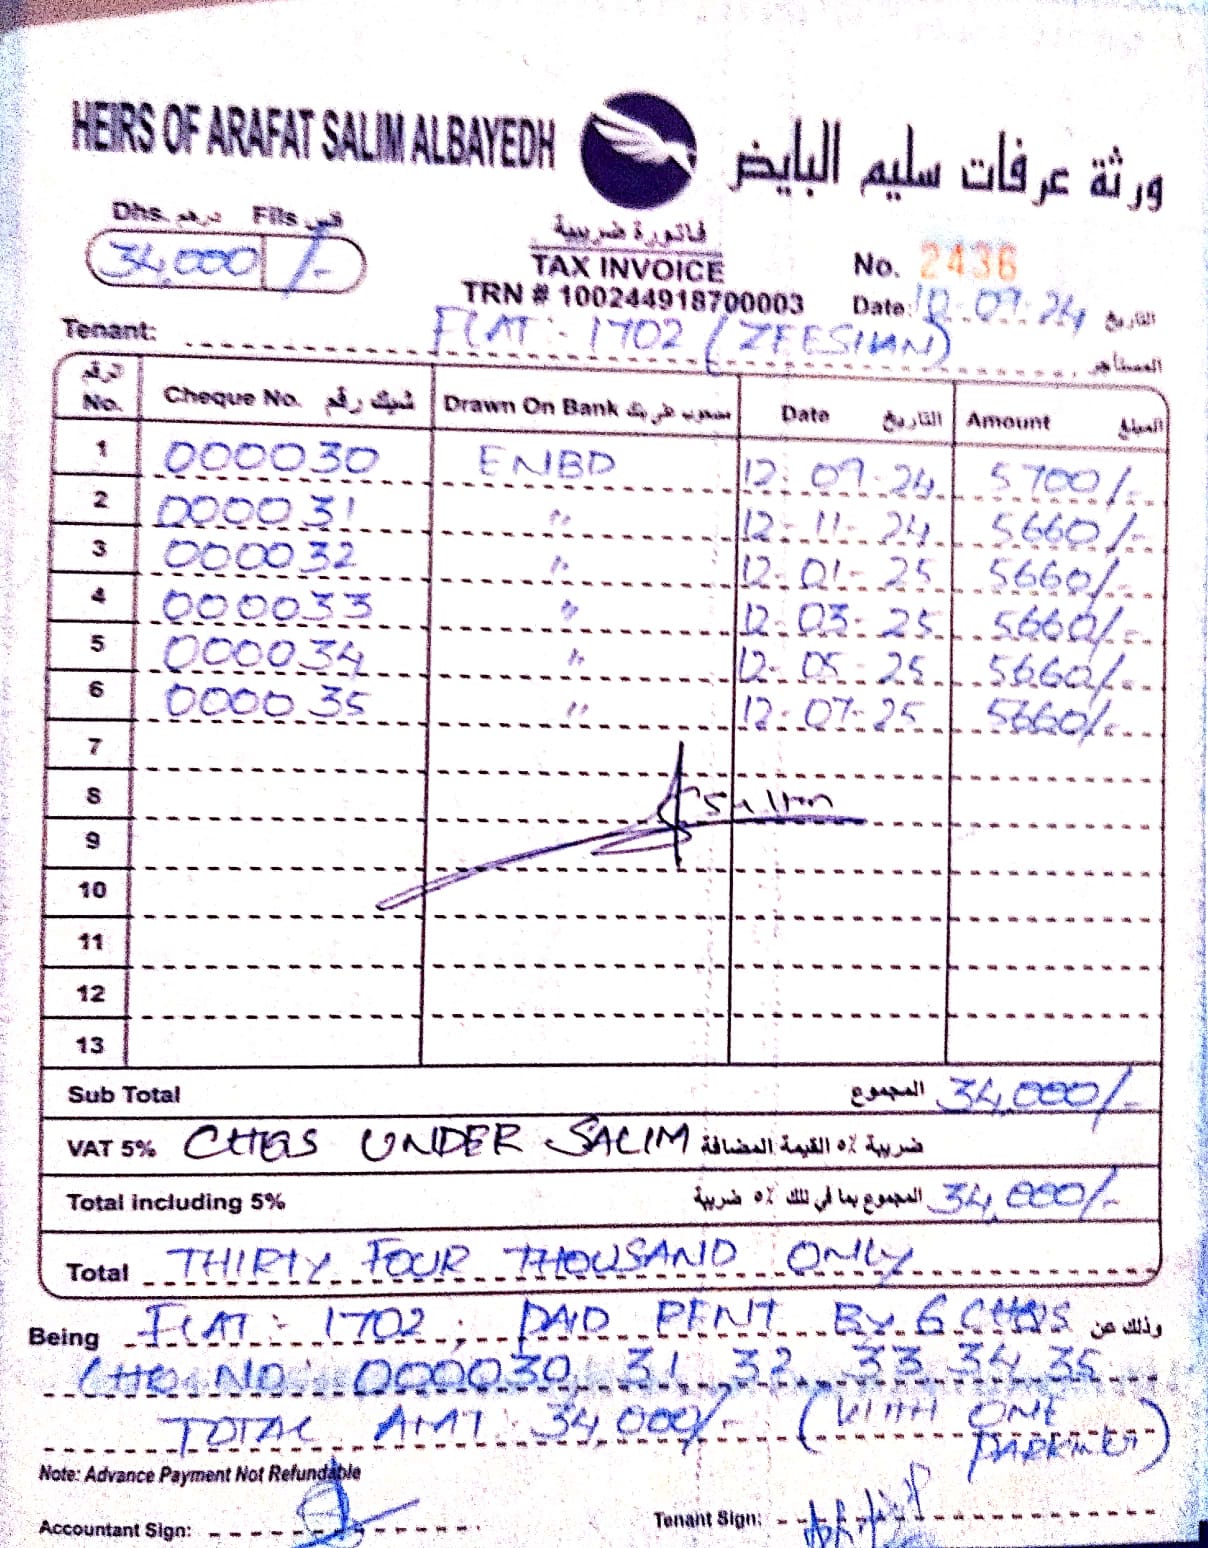 HEIRS OF ARAFAT SALIM ALBAYEDH
ورثة عرفات سليم البايض
Dhs. درهم Fils فلس
34,000 /-
فاتورة ضريبية
TAX INVOICE
TRN # 100244918700003
No. 2436
Date: 10.09.24 التاريخ
Tenant: FLAT:- 1702 (ZEESHAN) المستأجر
رقم No. Cheque No. شيك رقم Drawn On Bank مسحوب على بنك Date التاريخ Amount المبلغ
1 000030 ENBD 12.09.24 5700/-
2 000031 " 12-11-24 5660/-
3 000032 " 12-01-25 5660/-
4 000033 " 12-03-25 5660/-
5 000034 " 12-05-25 5660/-
6 000035 " 12-07-25 5660/-
7
8
9
10
11
12
13
Sub Total المجموع 34,000/-
VAT 5% CHQS UNDER SALIM ضريبة ٥٪ القيمة المضافة
Total including 5% المجموع بما في ذلك ٥٪ ضريبة 34,000/-
Total THIRTY FOUR THOUSAND ONLY
Being FLAT:- 1702, PAID RENT By 6 CHQS وذلك عن
CHQ NO: 000030, 31, 32, 33, 34, 35
TOTAL AMT: 34,000/- (WITH ONE
PARKING)
Note: Advance Payment Not Refundable
Accountant Sign: Tenant Sign: